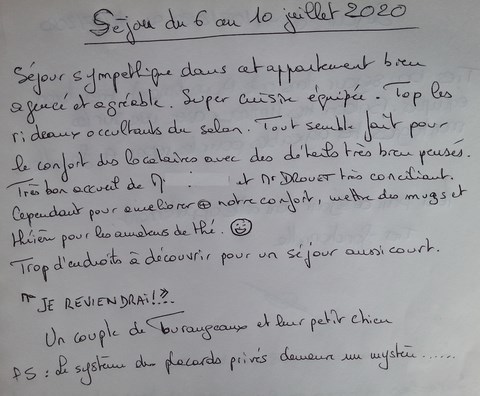 Séjour du 6 au 10 juillet 2020
Séjour sympathique dans cet appartement bien
agencé et agréable. Super cuisine équipée. Top les
rideaux occultants du salon. Tout semble fait pour
le confort des locataires avec des détails très bien pensés.
Très bon accueil de M et Mr DROUET très conciliant.
Cependant pour améliorer ⊕ notre confort, mettre des mugs et
théière pour les amateurs de thé. ☺
Trop d'endroits à découvrir pour un séjour aussi court.
"JE REVIENDRAI!"
Un couple de Tourangeaux et leur petit chien
PS : Le système des placards privés demeure un mystère......